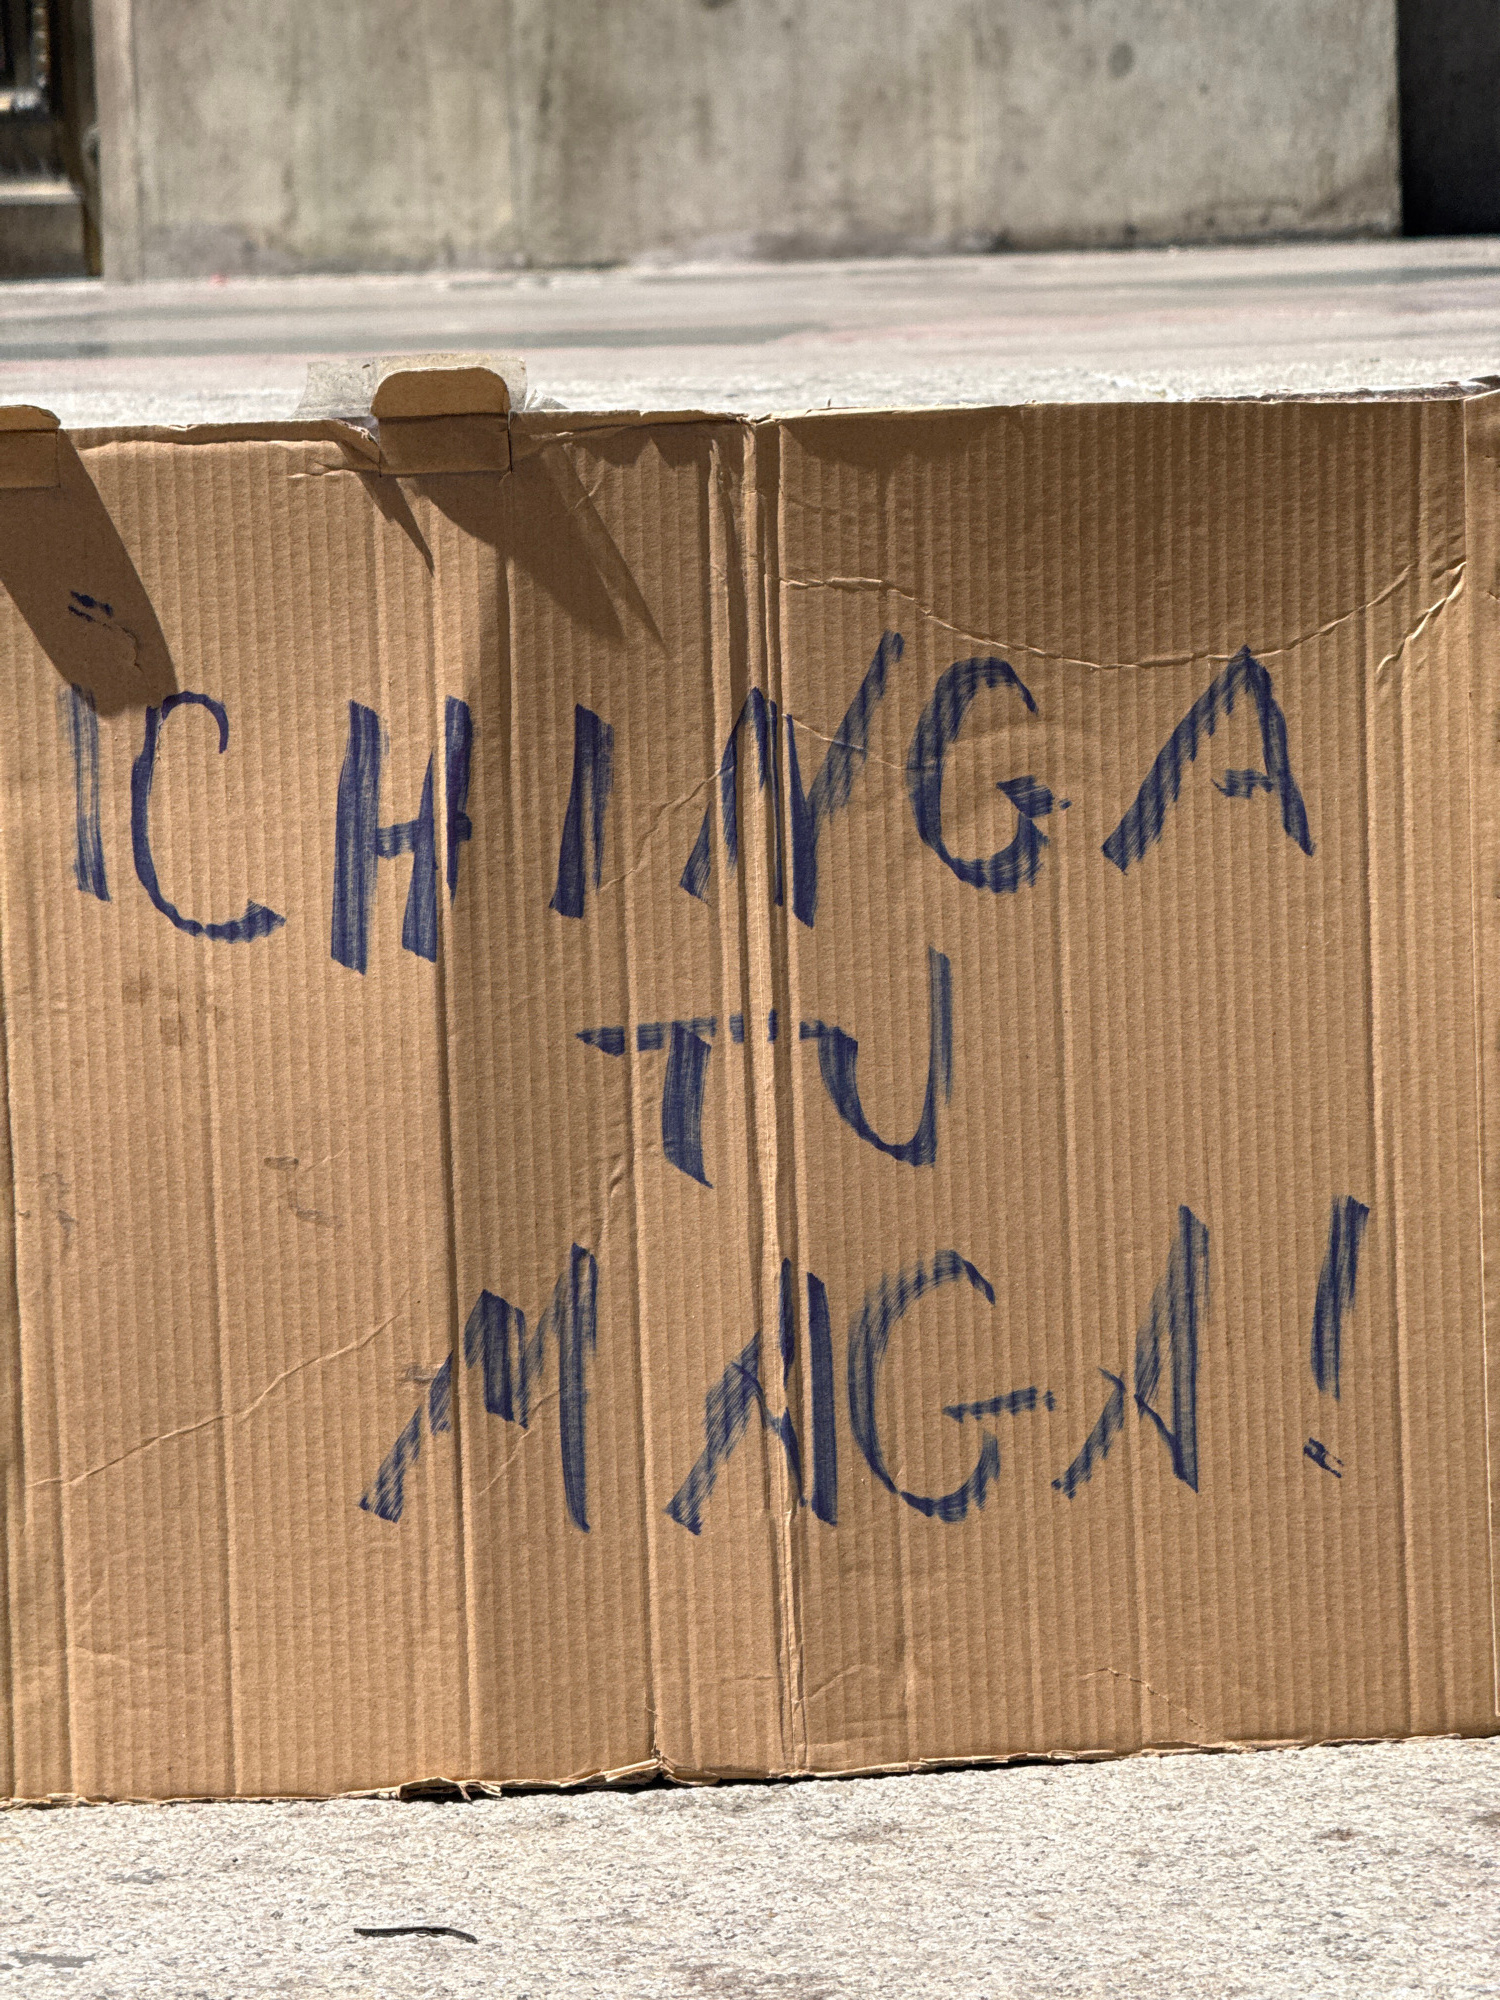 ¡CHINGA
TU
MAGA!